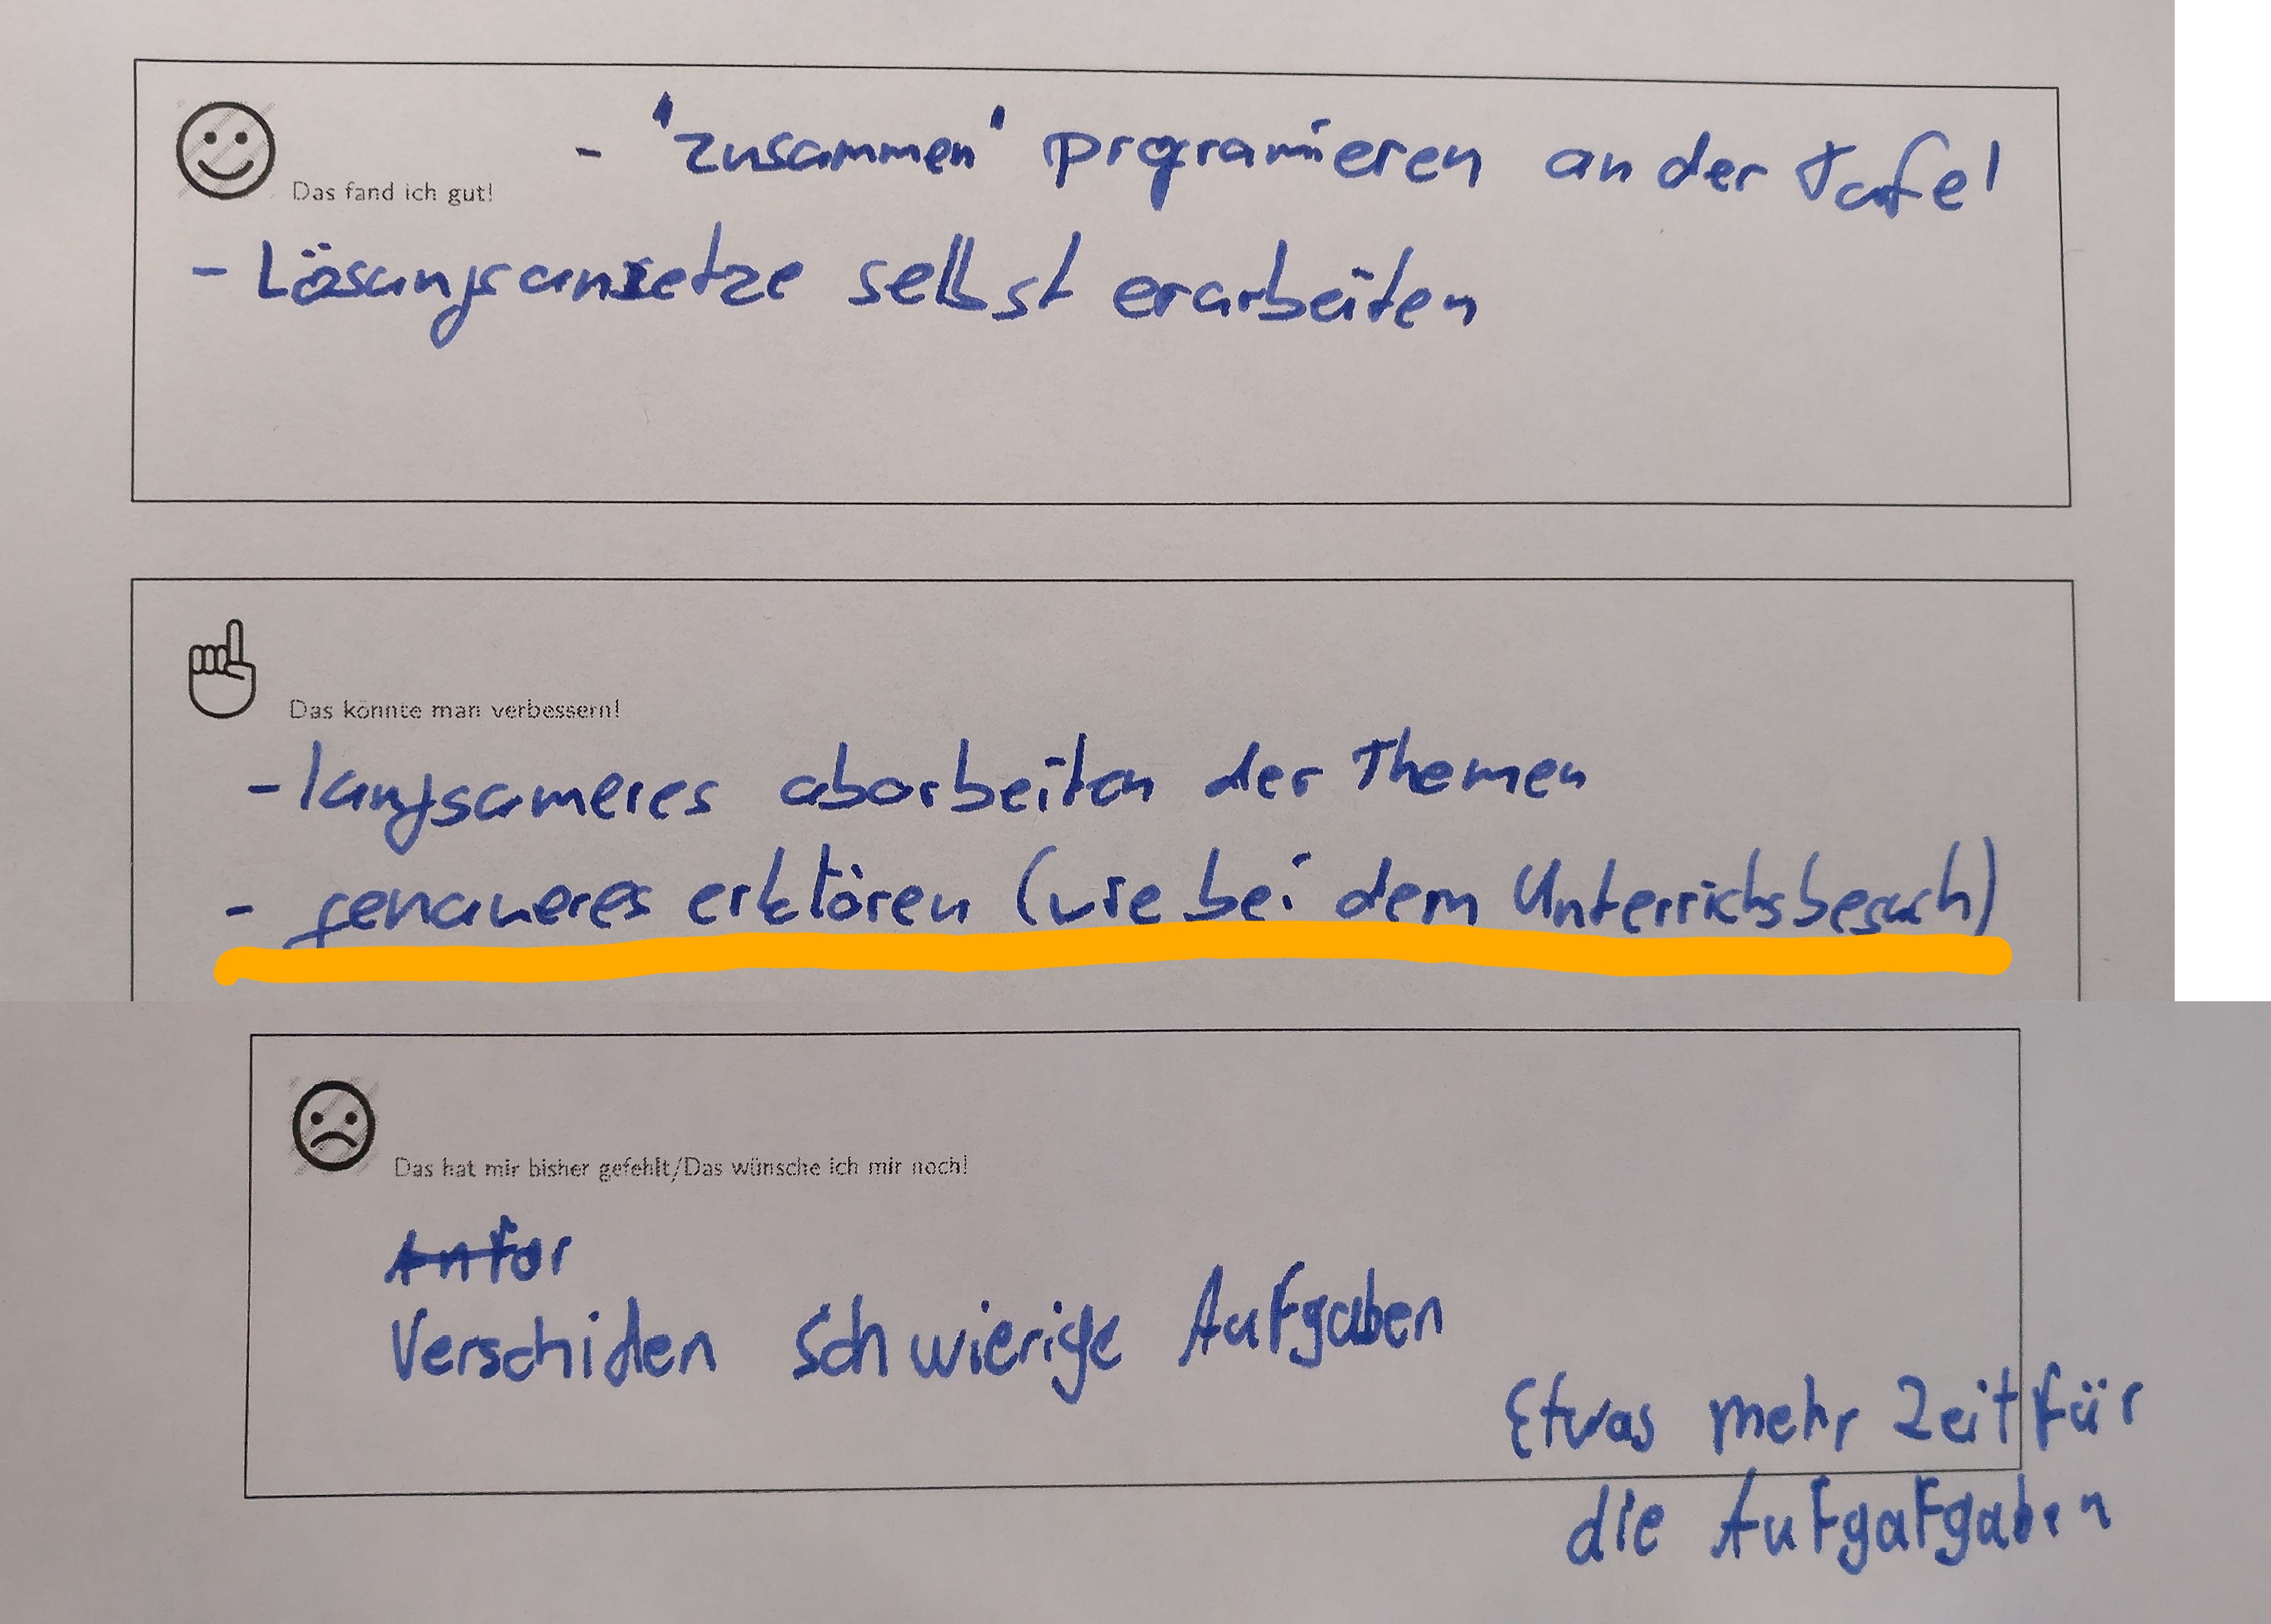 - "zusammen" programieren an der Tafel
Das fand ich gut!
- Lösungsansetze selbst erarbeiten
Das könnte man verbessern!
- langsameres abarbeiten der Themen
- genaueres erklären (wie bei dem Unterrichtsbesuch)
Das hat mir bisher gefehlt/Das wünsche ich mir noch!
Anfor
Verschiden schwierige Aufgaben
Etwas mehr Zeit für
die Aufgafgaben